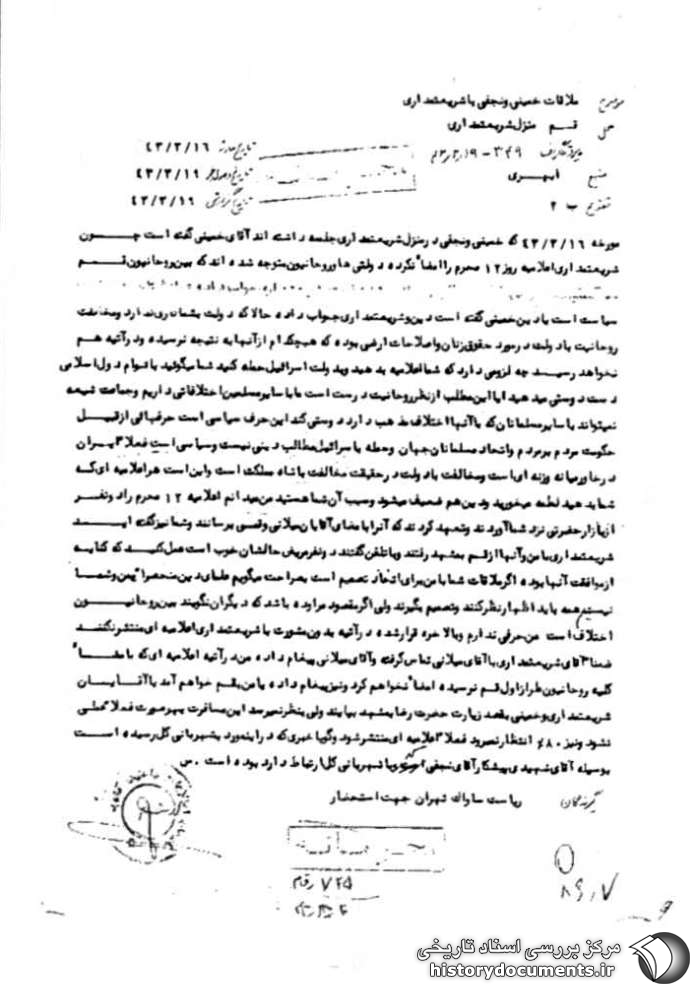 موضوع ملاقات خمینی ونجفی باشریعتمداری
محل قسم منزل شریعتمداری
تاریخ حادثه ۴۳/۳/۱۶
منبع ابهری تاریخ وصول خبر ۴۳/۳/۱۹
تقویم ب ۲ تاریخ گزارش ۴۳/۳/۱۹
مورخه ۴۳/۳/۱۶ که خمینی ونجفی درمنزل شریعتمداری جلسه داشته اند آقای خمینی گفته است چون
شریعتمداری اعلامیه روز ۱۲ محرم راامضاء نکرده دولتی هاوروحانیون متوجه شده اندکه بین روحانیون قسم
سیاست است یادین خمینی گفته است دین وشریعتمداری جواب داده حالاکه دولت بشماری ندارد ومخالفت
روحانیت بادولت درمورد حقوق زنان واصلاحات ارضی بوده که هیچکدام ازآنهابه نتیجه نرسیده ودرآتیه هم
نخواهد رسید چه لزومی داردکه شمااعلامیه بدهید وبدولت اسرائیل حمله کنید شمامیگوئید باتمام دول اسلامی
دست دوستی میدهید آیااین مطلب ازنظرروحانیت درست است مابا سایرمسلمین اختلافاتی داریم وجماعت شیعه
نمیتواند با سایرمسلمانان که باآنهااختلاف مذهب دارد دوستی کنداین حرف سیاسی است حرفهائی ازقبیل
حکومت مردم برمردم واتحادمسلمانان جهان وحمله باسرائیل مطالب دینی نیست وسیاسی است فعلا ایران
درخاورمیانه وزنه ای است ومخالفت بادولت درحقیقت مخالفت باشاه مملکت است واین است هراعلامیه ای که
شمابدهید لطمه میخورید ودین هم ضعیف میشود وسبب آن شماهستید من میدانم اعلامیه ۱۲ محرم رادونفر
ازبازارحضرتی نزدشماآوردند وتعهدکردندکه آنراباامضای آقایان میلانی وقمی برسانند وشمانیزگفته اید
شریعتمداری بامن وآنهاازقم بمشهد رفتند وباتلفن گفتند دونفرمریض حالشان خوب است عمل کنیدکه کنایه
ازموافقت آنهابوده اگرملاقات شمابامن برای اتخاذ تصمیم است بصراحت میگویم علمای دین منحصرا بمن وشما
نیستیم همه بایداظهارنظرکنند وتصمیم بگیرند ولی اگرمقصودمراوده باشدکه دیگران نگویند بین روحانیون
اختلاف است من حرفی ندارم وبالاخره قرارشده درآتیه بدون مشورت باشریعتمداری اعلامیه ای منتشرنکنند
ضمنا آقای شریعتمداری باآقای میلانی تماس گرفته وآقای میلانی پیغام داده من درآتیه اعلامیه ای که بامضاء
کلیه روحانیون طرازاول قم نرسیده امضاء نخواهم کرد ونیزپیغام داده یامن بقم خواهم آمد یاآقایان
شریعتمداری وخمینی بقصد زیارت حضرت رضابمشهد بیایند ولی بنظرنمیرسد این مسافرت بهرصورت فعلا عملی
نشود ونیز ۸۰٪ انتظارنمیرود فعلا اعلامیه ای منتشرشود وگویاخبری که دراینمورد بشهربانی کل رسیده است
بوسیله آقای شهیدی پیشکارآقای نجفی است که باشهربانی کل ارتباط دارد بوده است . س
گیرندگان ریاست ساواك تهران جهت استحضار
محرمانه
۷۲۵
مرکز بررسی اسناد تاریخی
historydocuments.ir